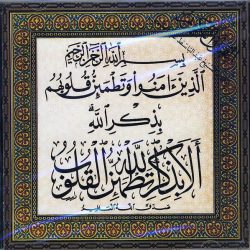 بسم الله الرحمن الرحيم
الَّذِينَ آمَنُوا وَتَطْمَئِنُّ قُلُوبُهُم
بِذِكْرِ اللَّهِ
أَلَا بِذِكْرِ اللَّهِ تَطْمَئِنُّ الْقُلُوبُ